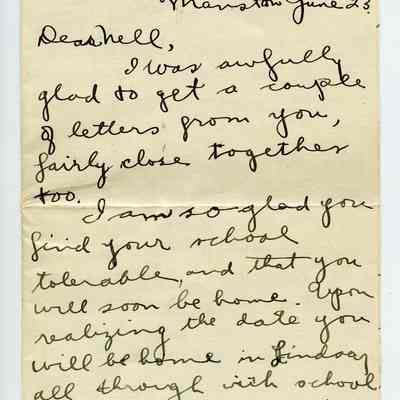 Manston June 23.
Dear Nell,
I was awfully
glad to get a couple
of letters from you,
fairly close together
too.
I am so glad you
find your school
tolerable, and that you
will soon be home. Upon
realizing the date you
will be home in Lindsay
all through with school